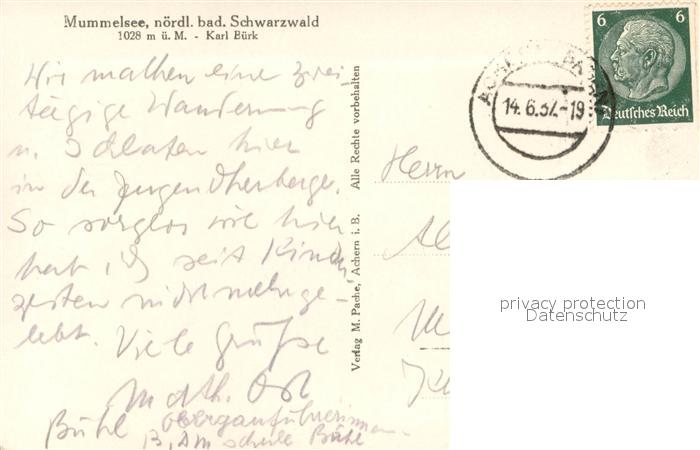 Mummelsee, nördl. bad. Schwarzwald
1028 m ü. M. - Karl Bürk
Wir machen eine zwei-
tägige Wanderung
u. schlafen hier
in der Jugendherberge.
So sorglos wie hier
hab ich seit Kinder
zeiten nicht mehr ge-
lebt. Viele Grüße
Math.
Bühl
Bühl
Verlag M. Pache, Achern i. B. Alle Rechte vorbehalten
14.6.37.-19
6 6
Deutsches Reich
Herrn
privacy protection
Datenschutz